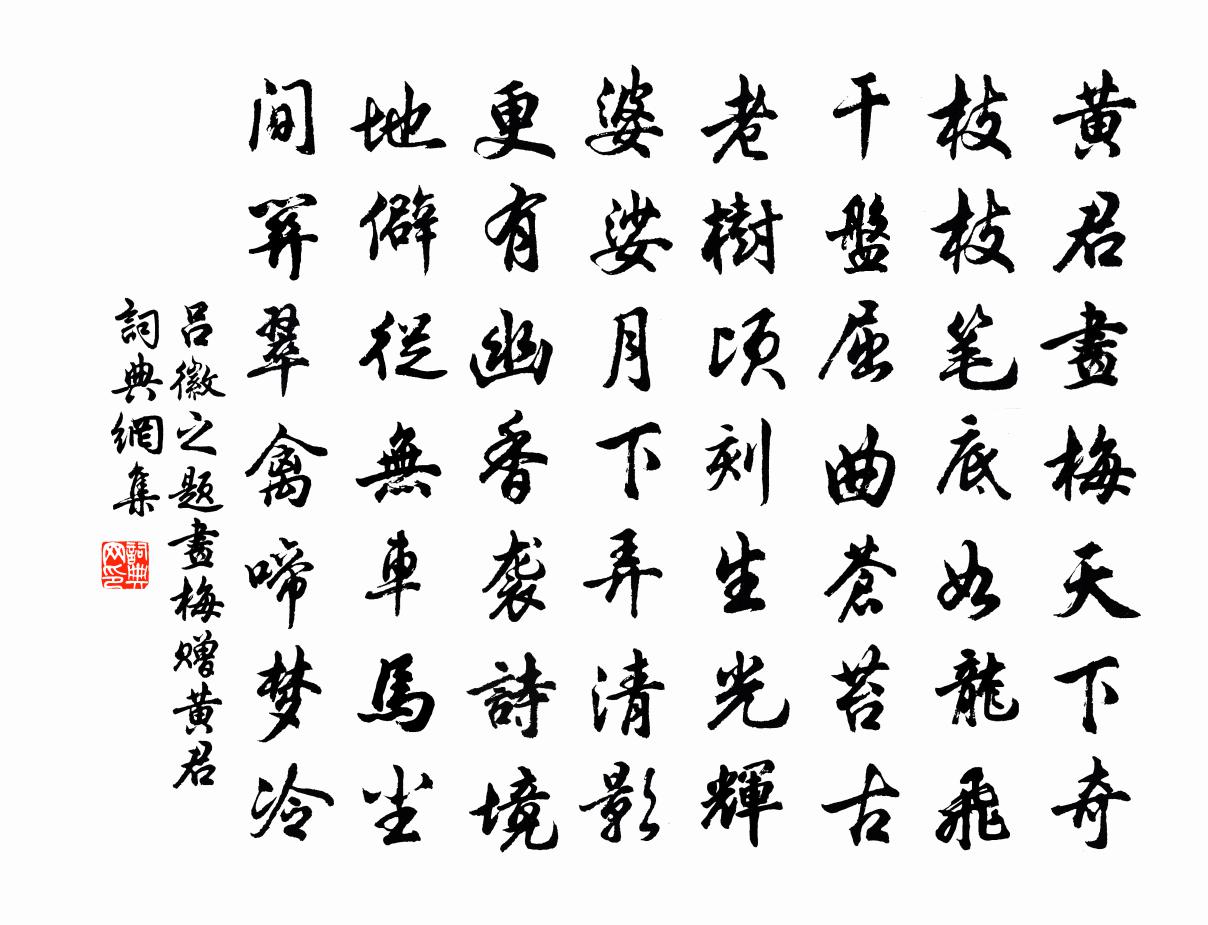 黄君畫梅天下奇
枝枝笔底如龍飛
干盤屈曲蒼苔古
老樹頃刻生光輝
婆娑月下弄清影
更有幽香袭詩境
地僻從無車馬尘
間關翠禽啼梦冷
吕徽之题畫梅赠黄君
詞典網集
詞典网印